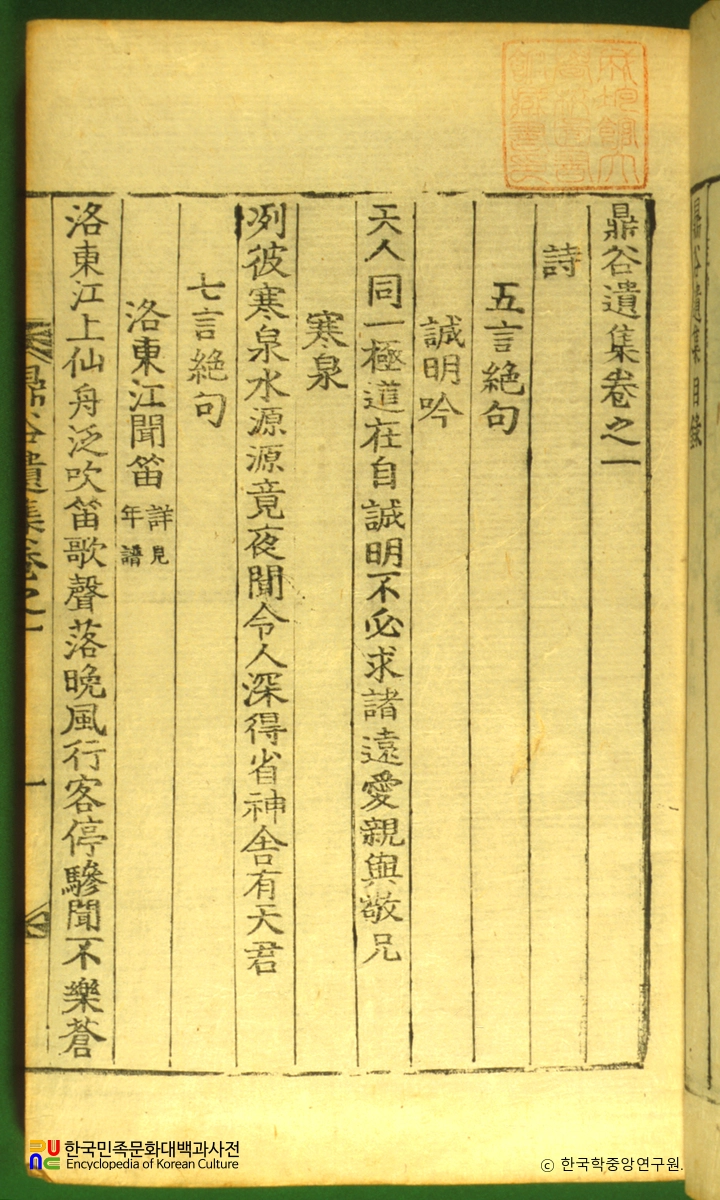 鼎谷遺集卷之一
詩
五言絶句
誠明吟
天人同一極道在自誠明不必求諸遠愛親與敬兄
寒泉
冽彼寒泉水源源竟夜聞令人深得省神舍有天君
七言絶句
洛東江聞笛 詳見年譜
洛東江上仙舟泛吹笛歌聲落晩風行客停驂聞不樂蒼
鼎谷遺集卷之一
一
鼎谷遺集目錄
한국민족문화대백과사전
Encyclopedia of Korean Culture
ⓒ 한국학중앙연구원.